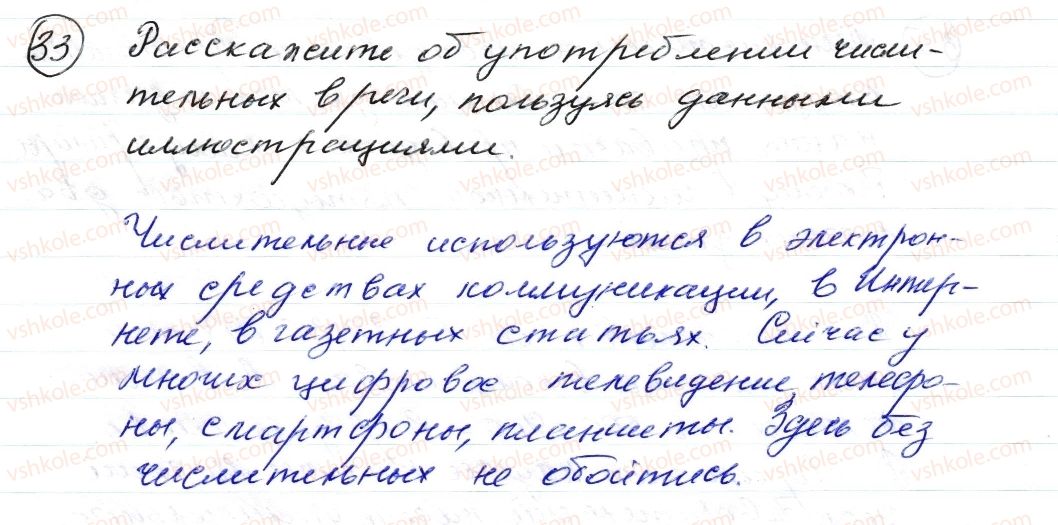 33 Расскажите об употреблении числи-
тельных в речи, пользуясь данными
иллюстрациями.
Числительные используются в электрон-
ных средствах коммуникации, в Интер-
нете, в газетных статьях. Сейчас у
многих цифровое телевидение, телефо-
ны, смартфоны, планшеты. Здесь без
числительных не обойтись.